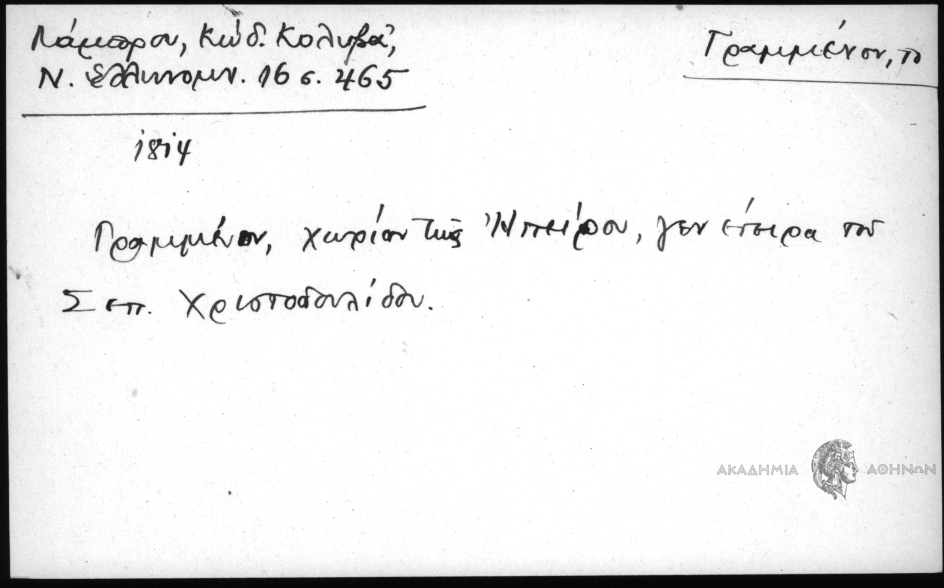 Λάμπρου, Κώδ. Κολυβᾶ,
Ν. Ἑλληνομν. 16 σ. 465
Γραμμένον, το
1814
Γραμμένον, χωρίον τῆς Ἠπείρου, γενέτειρα τοῦ
Σεπ. Χριστοδουλίδου.
ΑΚΑΔΗΜΙΑ ΑΘΗΝΩΝ